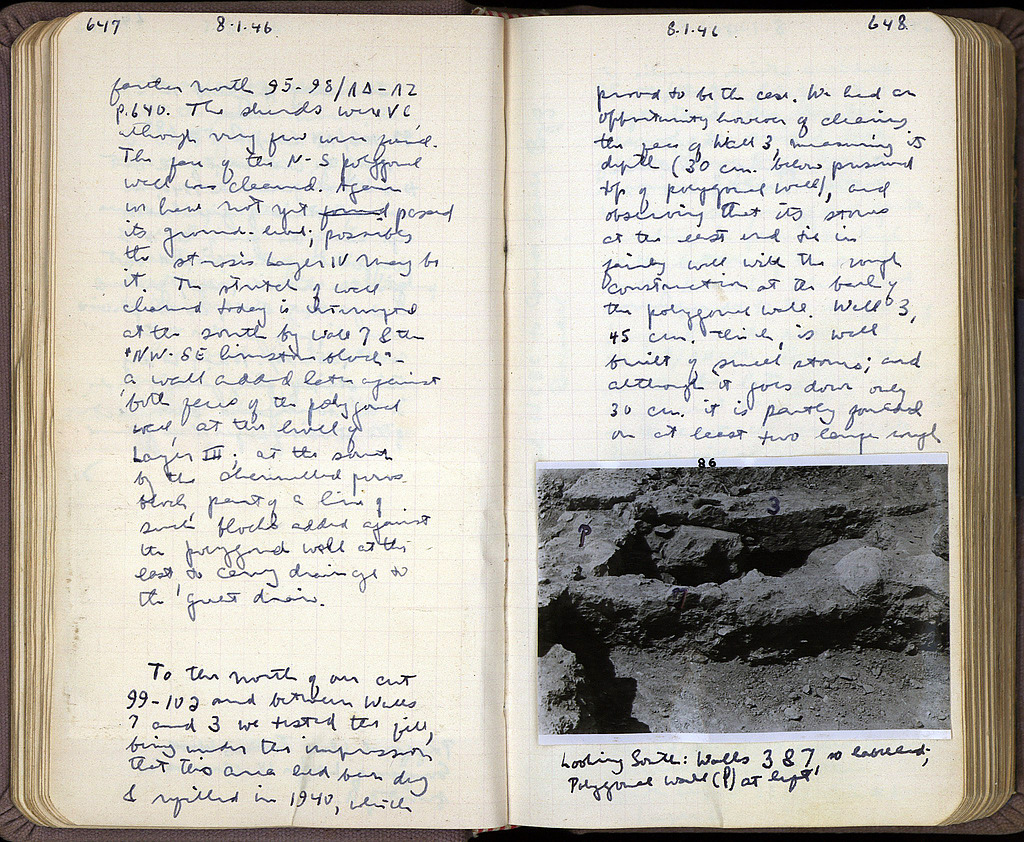 647 8·1·46
farther north 95-98/ΛΔ-ΛΖ
p.640. The sherds were VC
although very few were found.
The face of the N-S polygonal
wall was cleaned. Again
we have not yet found passed
its ground level; possibly
the strosis Layer IV may be
it. The stretch of wall
cleaned today is interrupted
at the south by wall 7 & the
"NW-SE limestone block" -
a wall added later against
both faces of the polygonal
wall, at the level of
Layer III; at the south
by the channelled poros
block, part of a line of
such blocks added against
the polygonal wall at the
east, to carry drainage to
the great drain.
To the north of our cut
99-102 and between Walls
7 and 3 we tested the fill,
being under the impression
that this area had been dug
& refilled in 1940, which
8·1·46 648
proved to be the case. We had an
opportunity however of cleaning
the face of Wall 3, measuring its
depth (30 cm. below preserved
top of polygonal wall), and
observing that its stones
at the east end tie in
fairly well with the rough
construction at the back of
the polygonal wall. Wall 3,
45 cm. thick, is well
built of small stones; and
although it goes down only
30 cm. it is partly founded
on at least two large rough
86
3
P
7
Looking South: Walls 3 & 7, so labelled;
Polygonal Wall (P) at left